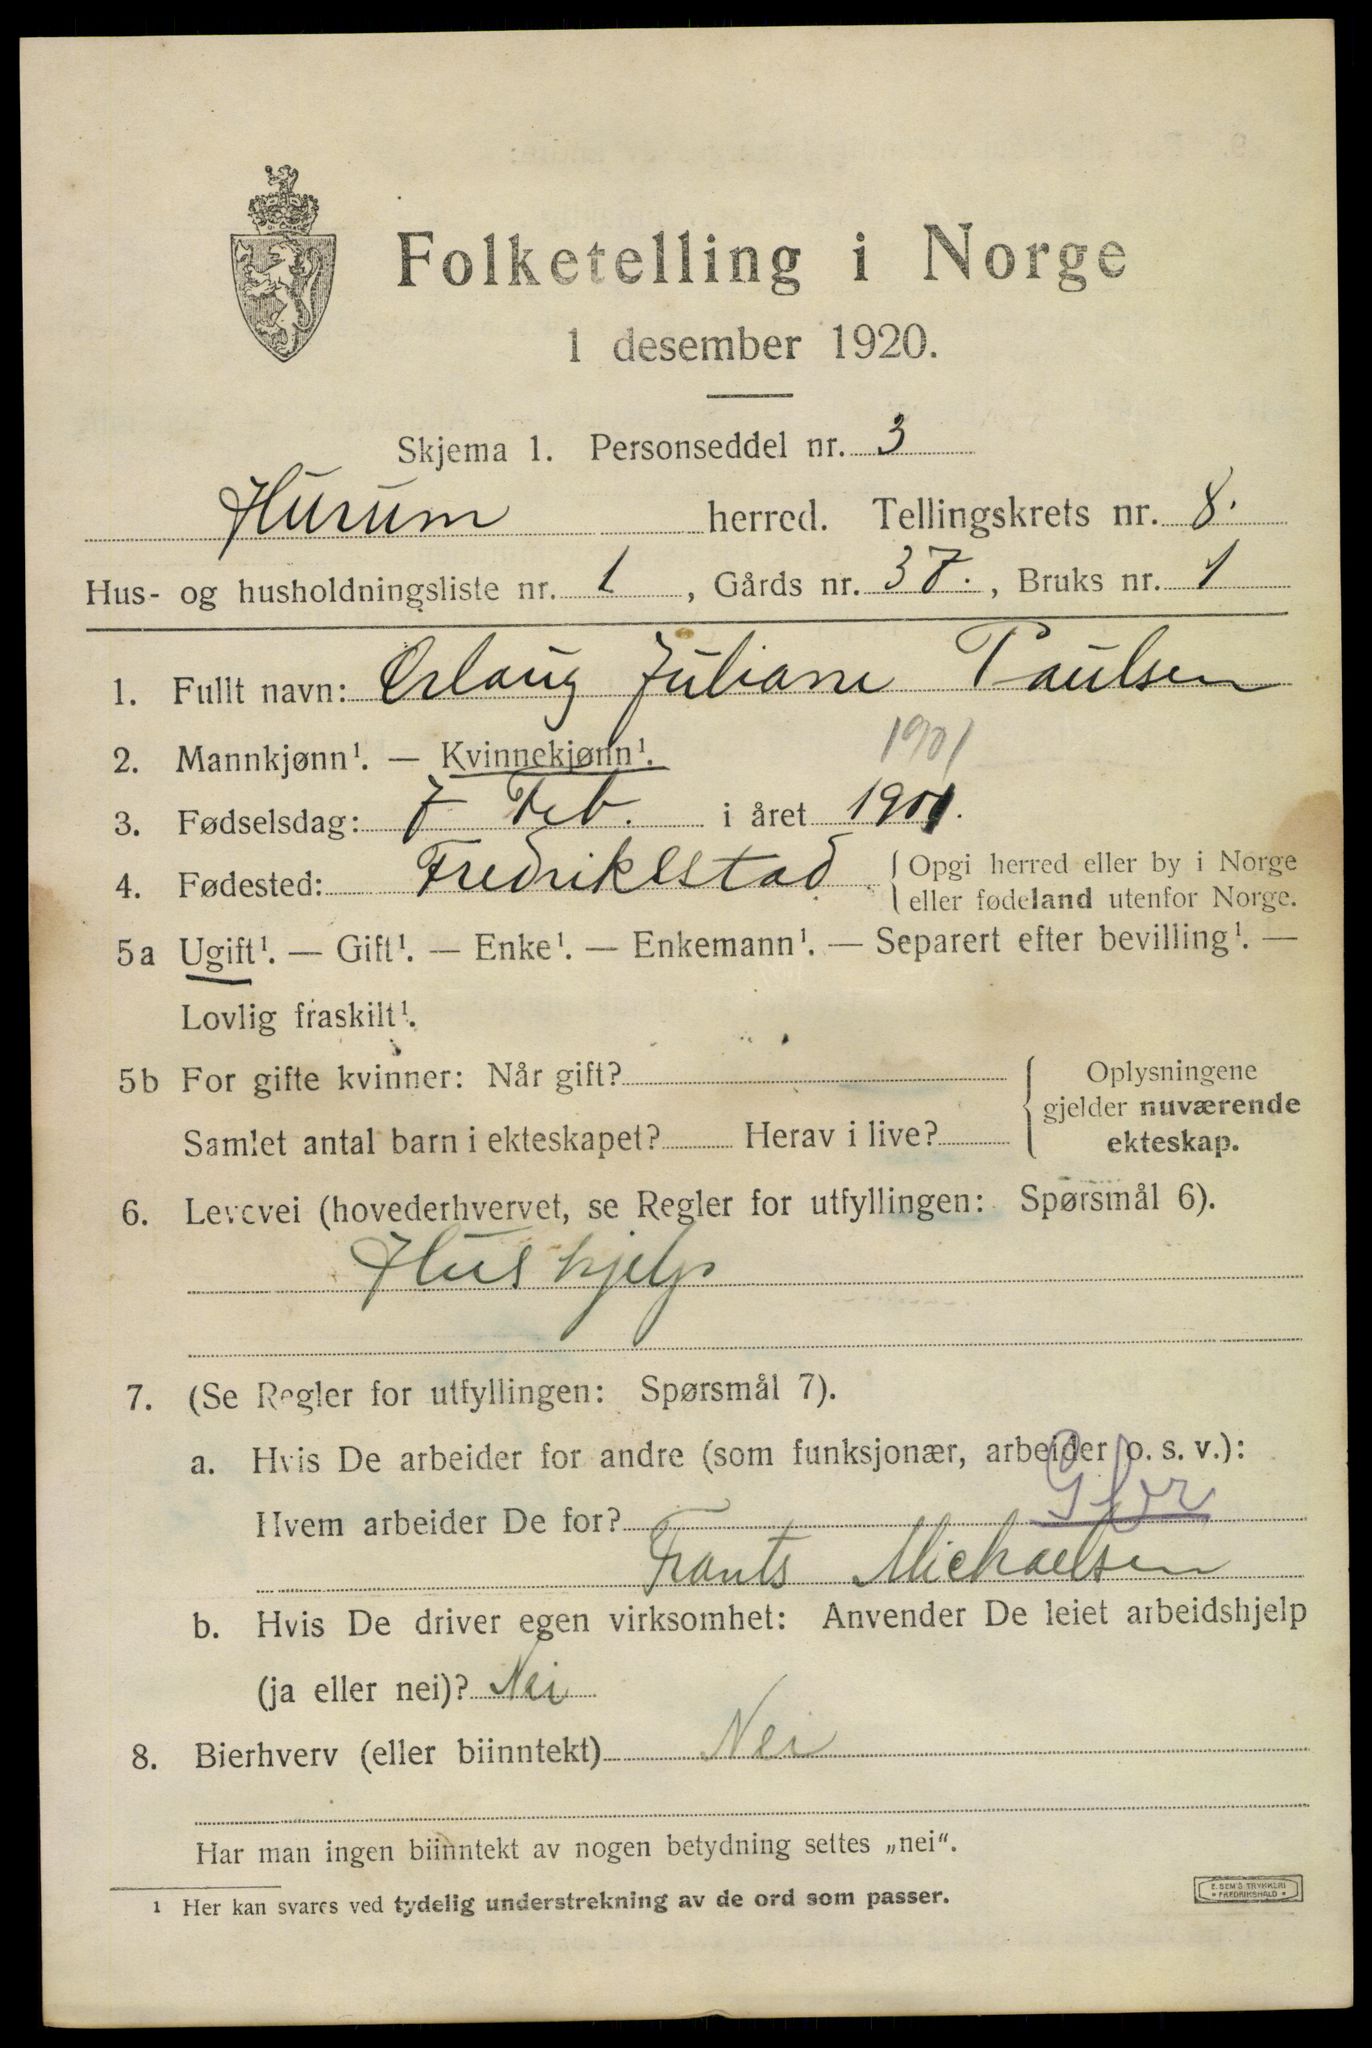 Folketelling i Norge
1 desember 1920.
Skjema 1. Personseddel nr. 3
Hurum herred. Tellingskrets nr. 8.
Hus- og husholdningsliste nr. 1, Gårds nr. 37., Bruks nr. 1
1. Fullt navn: Erlaug Juliane Paulsen
1901
2. Mannkjønn¹. — Kvinnekjønn¹.
3. Fødselsdag: 7 Feb. i året 1901.
4. Fødested: Fredrikstad {Opgi herred eller by i Norge
eller fødeland utenfor Norge.
5a Ugift¹. — Gift¹. — Enke¹. — Enkemann¹. — Separert efter bevilling¹. —
Lovlig fraskilt¹.
5b For gifte kvinner: Når gift?
Samlet antal barn i ekteskapet? Herav i live?
{Oplysningene
gjelder nuværende
ekteskap.
6. Levevei (hovederhvervet, se Regler for utfyllingen: Spørsmål 6).
Hushjelp
7. (Se Regler for utfyllingen: Spørsmål 7).
a. Hvis De arbeider for andre (som funksjonær, arbeider o. s. v.):
Hvem arbeider De for?
Frants Michaelsen
b. Hvis De driver egen virksomhet: Anvender De leiet arbeidshjelp
(ja eller nei)? Nei
8. Bierhverv (eller biinntekt) Nei
Har man ingen biinntekt av nogen betydning settes „nei“.
¹ Her kan svares ved tydelig understrekning av de ord som passer.
E. SEM'S TRYKKERI
• FREDRIKSHALD •